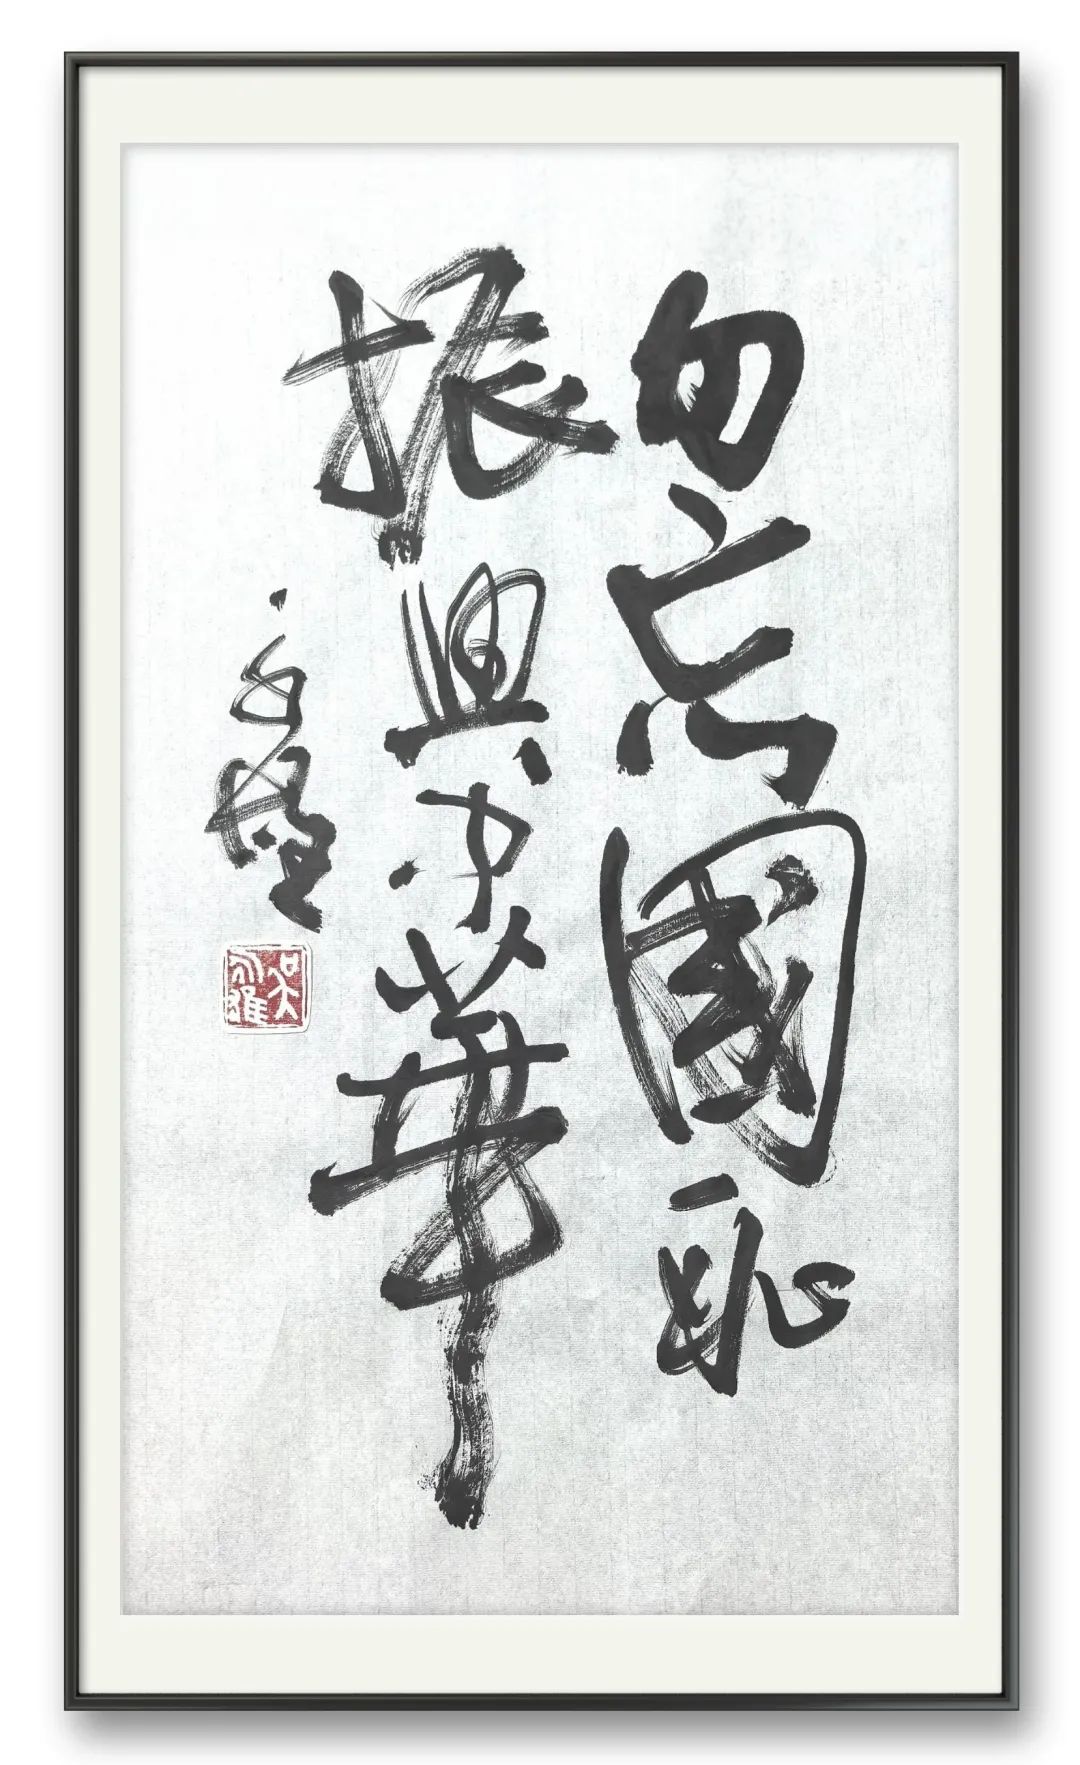 勿忘國恥
振興中華